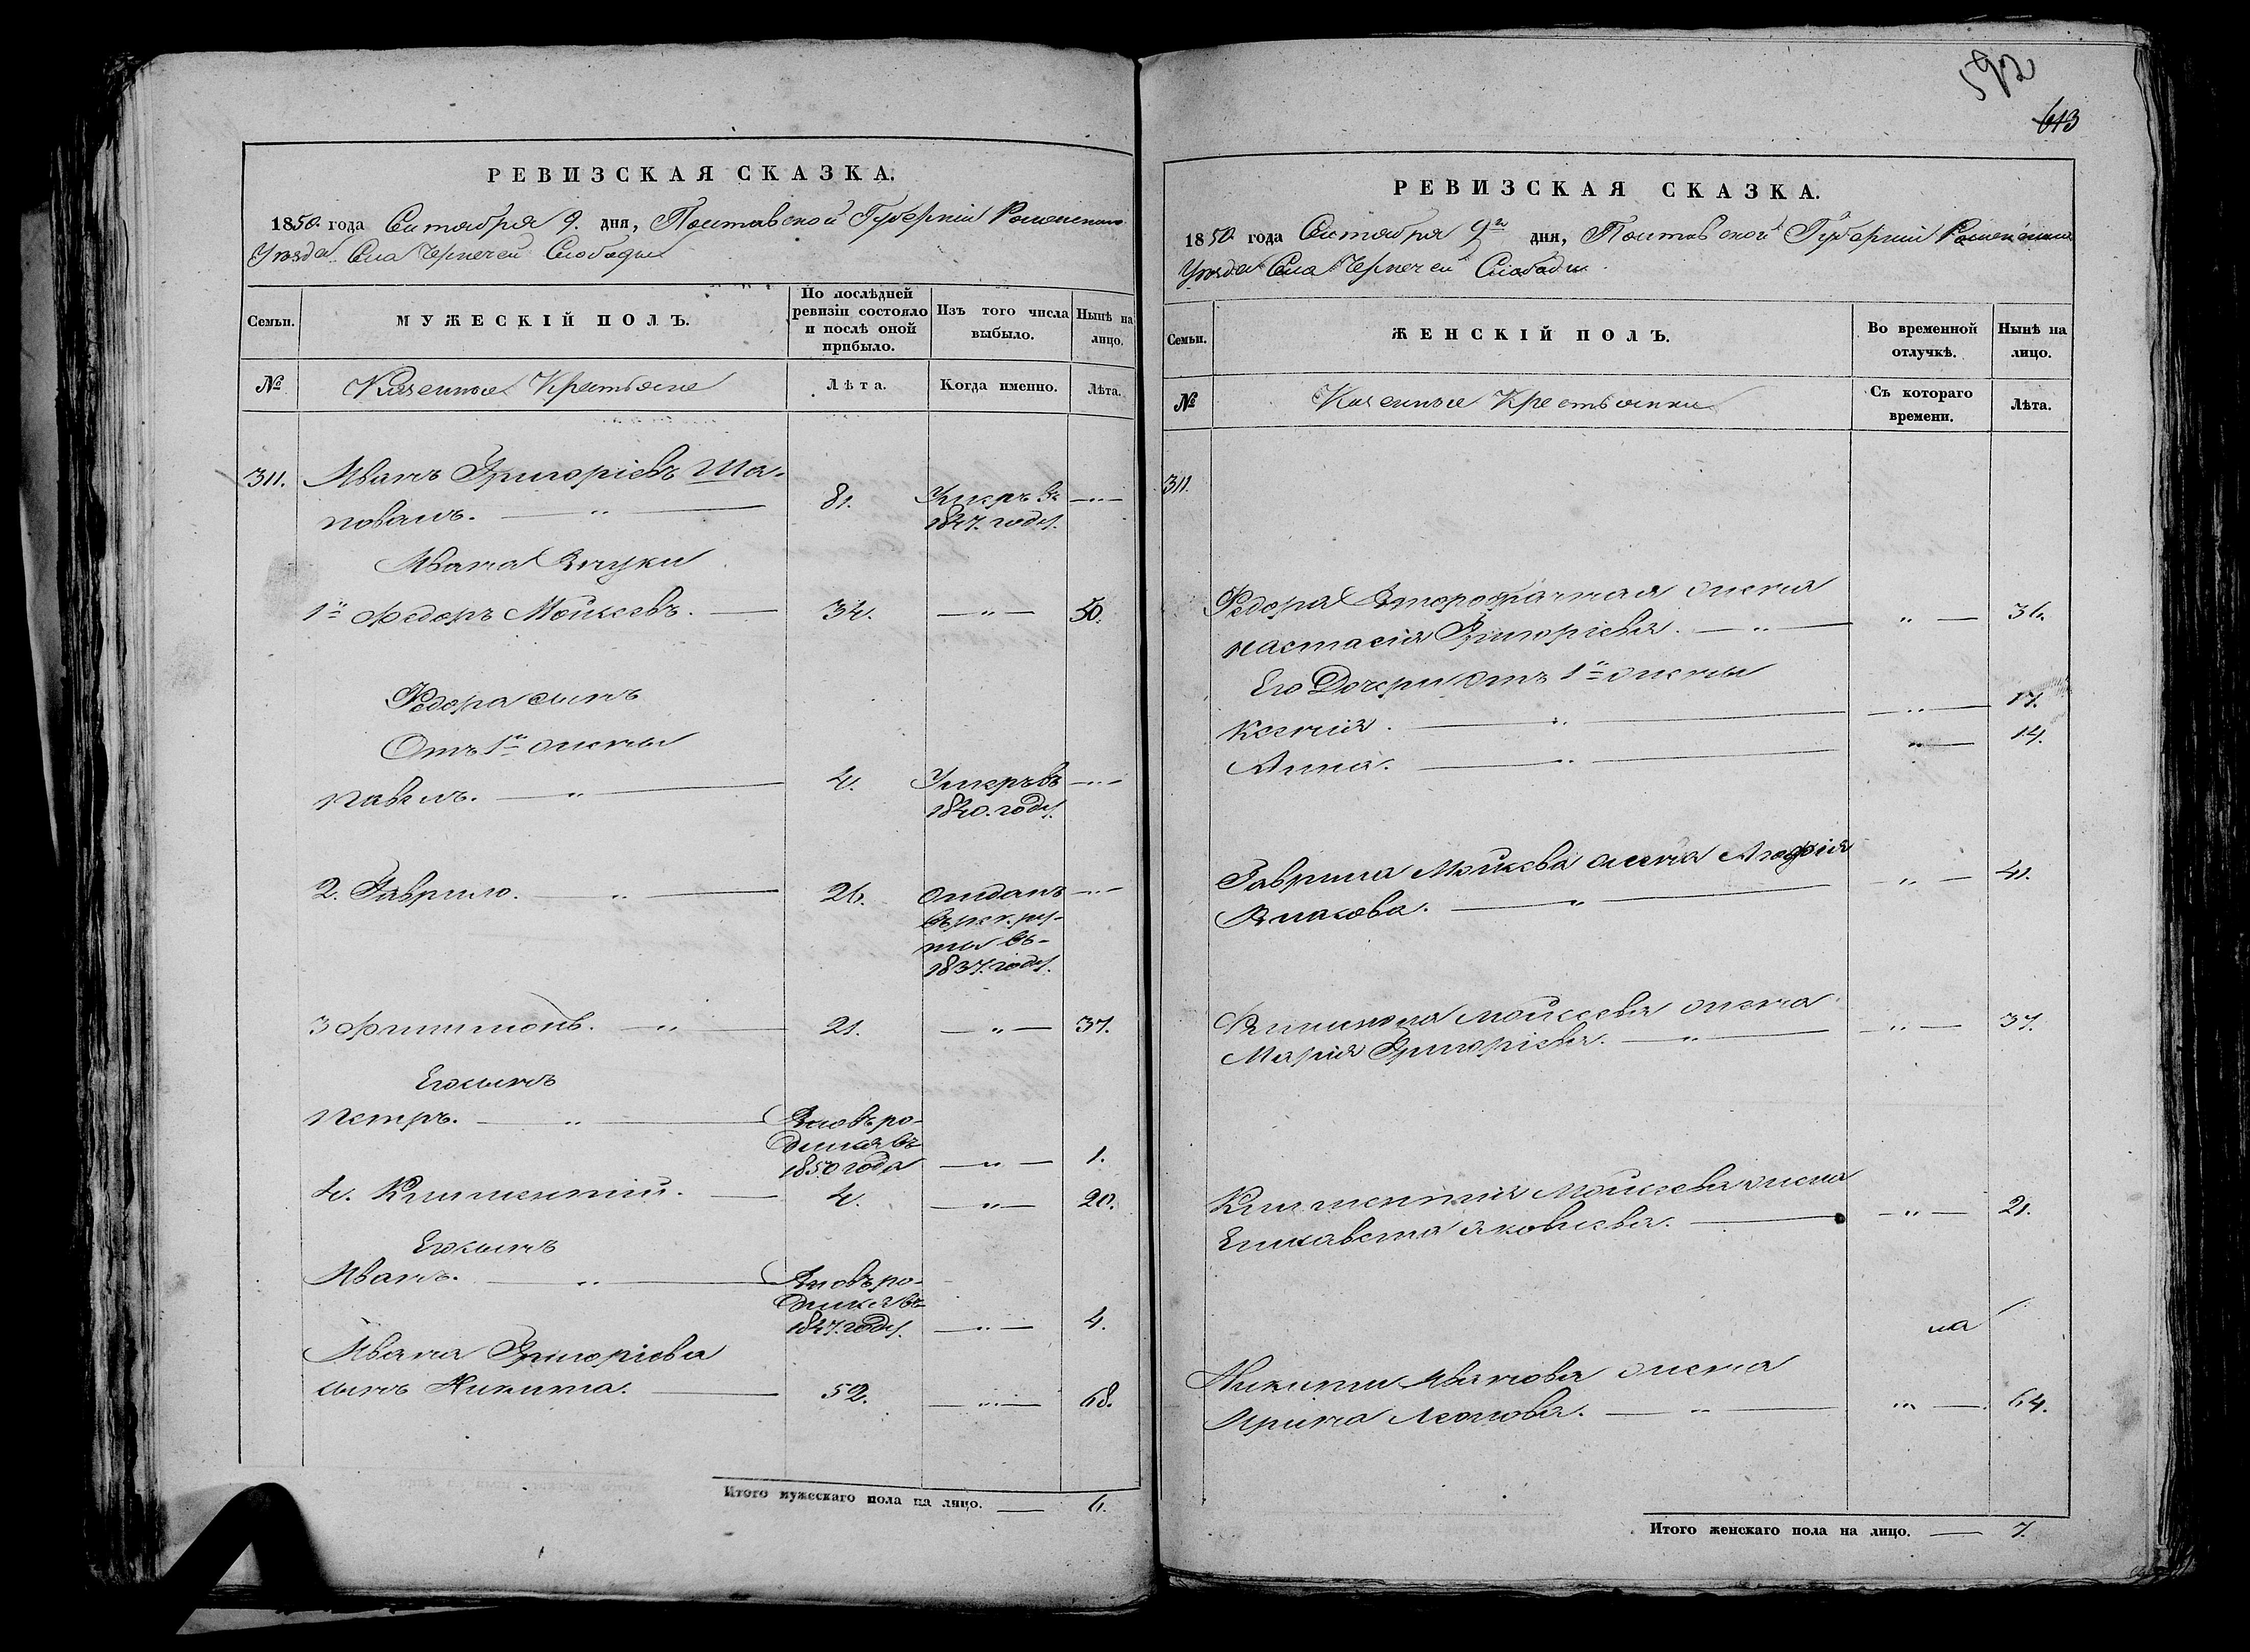 РЕВИЗСКАЯ СКАЗКА.
1850 года Сентября 9. дня, Полтавской Губерніи Роменскаго
Уезда Села Чернечей Слободы
Семьи.
МУЖЕСКІЙ ПОЛЪ.
По послѣдней ревизіи состояло и послѣ оной прибыло.
Изъ того числа выбыло.
Нынѣ на лицо.
№
Казенные Крестьяне
Лѣта.
Когда именно.
Лѣта.
311. Иванъ Григоріевъ Ша-
повалъ. — " — 81. Умеръ въ — " —
1847. году.
Ивана Внуки
1й Федоръ Мойсеевъ. — 34. — " — 50.
Федора сынъ
Отъ 1й жены
Павелъ. — " — 4. Умеръ въ — " —
1840. году.
2. Гаврило. — " — 26. отданъ — " —
въ рек-ру-
ты въ-
1837. году.
3 Филимонъ. — " — 21. — " — 37.
Его сынъ
Петръ. — " — Вновь ро-
дился въ
1850 года — " — 1.
4. Климентій. — 4. — " — 20.
Его сынъ
Иванъ. — " — Вновь ро-
дился въ
1847. году. — " — 4.
Ивана Григоріева
сынъ Никита. — 52. — " — 68.
Итого мужескаго пола на лицо. — 6.
592
613
РЕВИЗСКАЯ СКАЗКА.
1850 года Сентября 9го дня, Полтавской Губерніи Роменскаго
Уезда Села Чернечей Слободы.
Семьи.
ЖЕНСКІЙ ПОЛЪ.
Во временной отлучкѣ.
Нынѣ на лицо.
№
Казенные Крестьянки
Съ котораго времени.
Лѣта.
311.
Федора Второбрачная жена
Настасія Григоріева. — " — " — 36.
Его Дочери отъ 1й жены
Ксенія. — " — " — 17.
Анна. — " — " — 14.
Гаврила Мойсева жена Агафія
Власова. — " — " — 41.
Филимона Мойсеева жена
Марія Григоріева. — " — " — 37.
Климентія Мойсеева жена
Елисавета Яковлева. — " — 21.
на
Никиты Иванова жена
Ирина Леонова. — " — " — 64.
Итого женскаго пола на лицо. — 7.